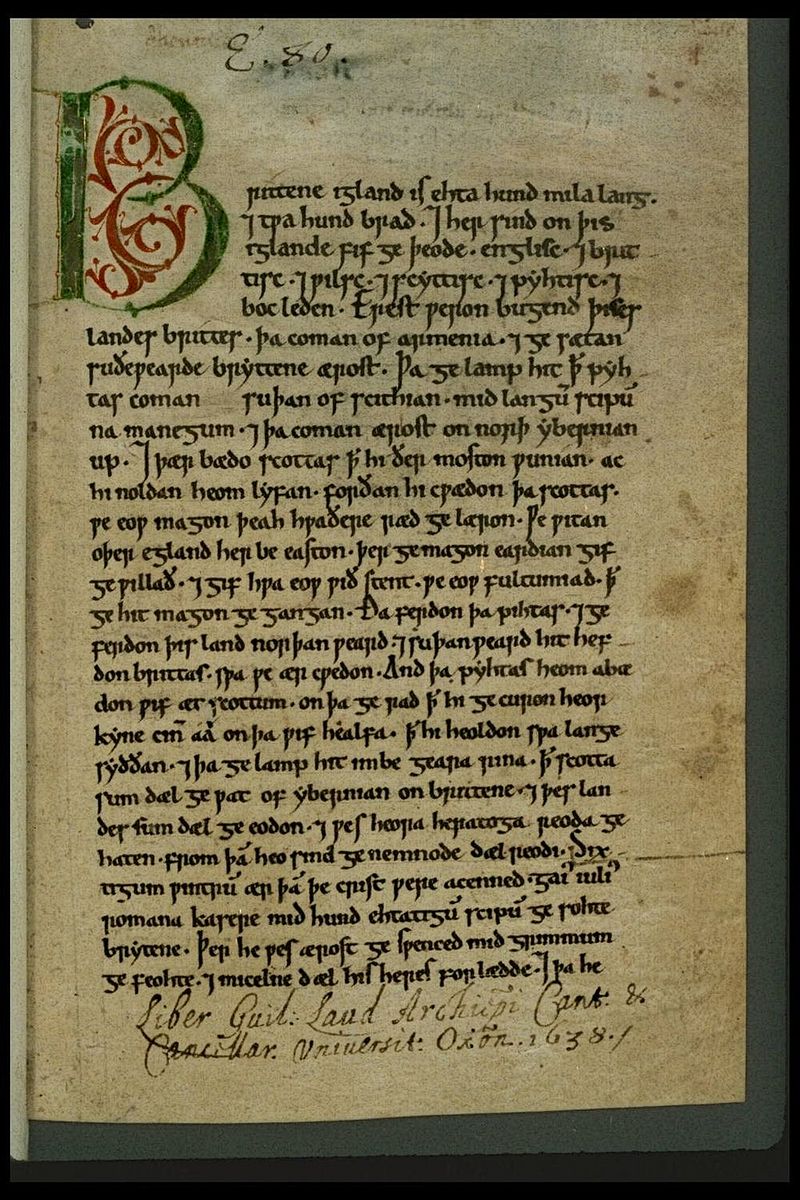 E. 80.
Brittene igland is ehta hund mila lang.
⁊ tƿa hund brad. ⁊ her sind on þis
iglande fif ge þeode. englisc. ⁊ brit
tisc. ⁊ ƿilsc. ⁊ scyttisc. ⁊ pyhtisc. ⁊
boc leden. Erest ƿeron bugend þises
landes brittes. þa coman of armenia. ⁊ ge sætan
suðeƿearde bryttene ærost. Þa ge lamp hit ꝥ pyh
tas coman suþan of scithian. mid langū scipū
na manegum. ⁊ þa coman ærost on norþ ybernian
up. ⁊ þær bædo scottas ꝥ hi ðer moston ƿunian. ac
hi noldan heom lyfan. forðan hi cƿædon þa scottas.
ƿe eoƿ magon þeah hƿaðere ræd ge læron. Ƿe ƿitan
oþer egland her be easton. þer ge magon eardian gif
ge ƿillað. ⁊ gif hƿa eoƿ ƿið stent. ƿe eoƿ fultumiad. ꝥ
ge hit magon ge gangan. Ða ferdon þa pihtas. ⁊ ge
ferdon þis land norþan ƿeard. ⁊ suþan ƿeard hit hef
don brittas. sƿa ƿe ær cƿedon. And þa pyhtas heom abæ
don ƿif æt scottum. on þa ge rad ꝥ hi ge curon heor
kyne cin̄ aa on þa ƿif healfa. ꝥ hi heoldon sƿa lange
syððan. ⁊ þa ge lamp hit imbe geara rina. ꝥ scotta
sum dæl ge ƿat of ybernian on brittene. ⁊ þes lan
des sum dæl ge eodon. ⁊ ƿes heora heratoga reoda ge
haten. from þā heo sind ge nemnode dæl reodi. Six
tigum ƿintrū ær þā þe crist ƿere acenned. gai᷒ iuli᷒
romana kasere mid hund ehtatigū scipū ge sohte
brytene. Þer he ƿes ærost ge sƿenced mid grimmum
ge feohte. ⁊ micelne dæl his heres forlædde. ⁊ þa he
Liber Guil: Laud Archiep̄i Cant: &
Cancillar. Universit: Oxōn. 1638./